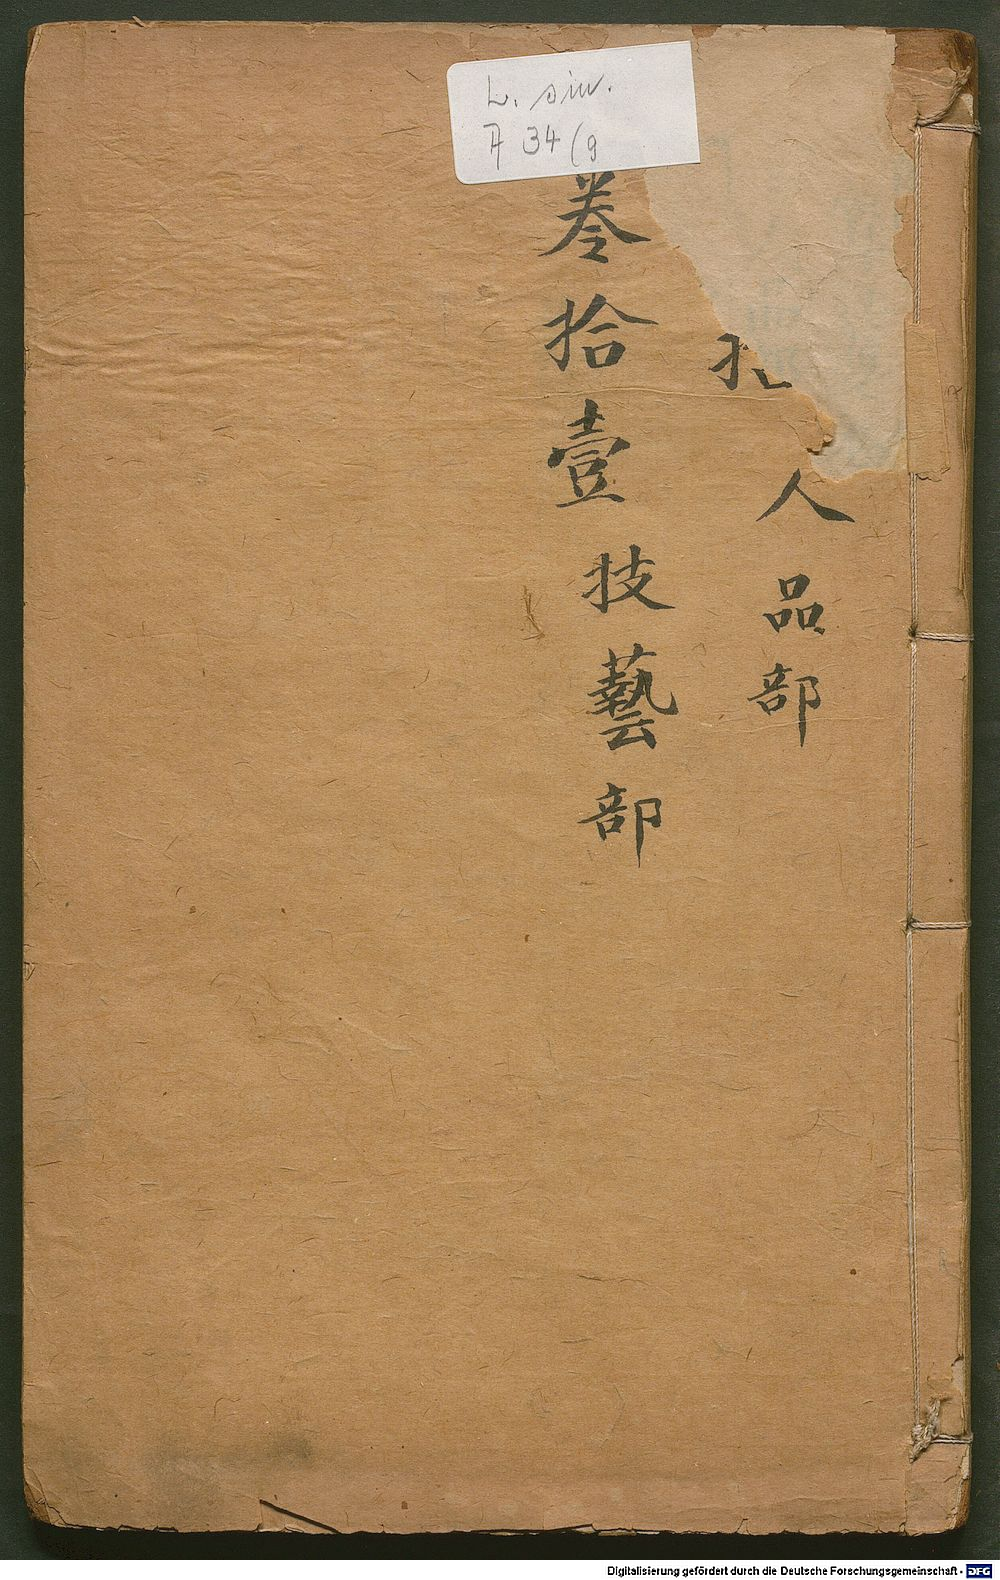 L. sin.
A 34(9
人品部
卷拾壹 技藝部
Digitalisierung gefördert durch die Deutsche Forschungsgemeinschaft - DFG